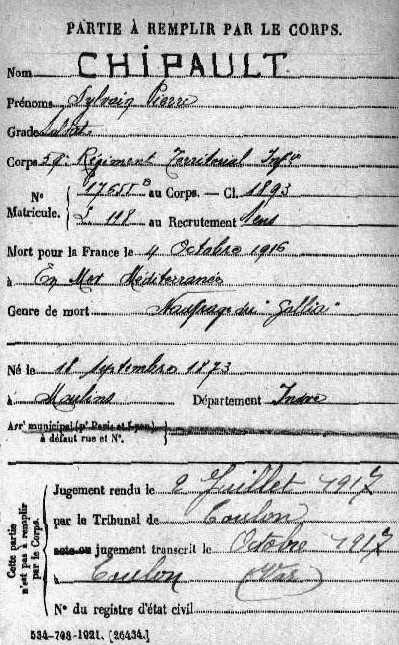 PARTIE À REMPLIR PAR LE CORPS.
Nom CHIPAULT
Prénoms Sylvain Pierre
Grade Soldat
Corps 59e Régiment Territorial Infie
N° Matricule. { 17655 au Corps. — Cl. 1893
118 au Recrutement Sens
Mort pour la France le 4 Octobre 1916
à En Mer Méditerranée
Genre de mort Naufrage du "Gallia"
Né le 18 Septembre 1873
à Moulins Département Indre
Arrt municipal (pr Paris et Lyon),
à défaut rue et N°.
Cette partie n'est pas à remplir par le Corps.
Jugement rendu le 2 Juillet 1917
par le Tribunal de Toulon
acte ou jugement transcrit le Octobre 1917
à Toulon (Var)
N° du registre d'état civil
534-708-1921. [26434.]